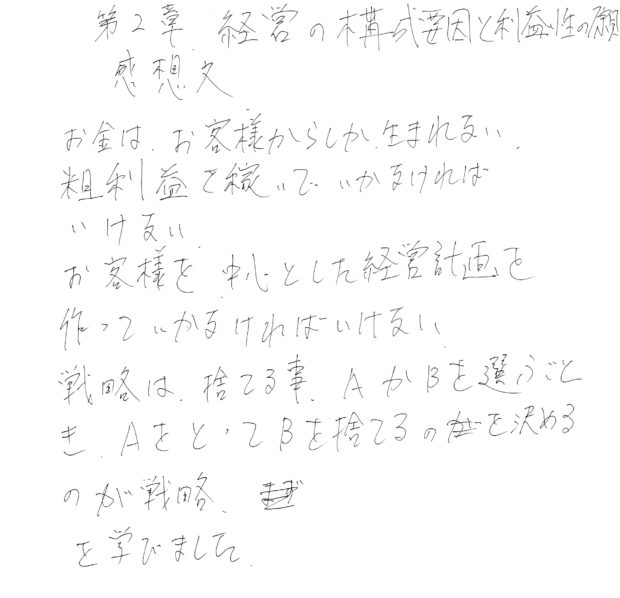 第2章 経営の構成要因と利益性の願
感想文
お金は、お客様からしか生まれない。
粗利益を稼いでいかなければ
いけない
お客様を中心とした経営計画を
作っていかなければいけない。
戦略は、捨てる事、AかBを選ぶこと
き、AをとってBを捨てるのを決める
のが戦略、
を学びました。